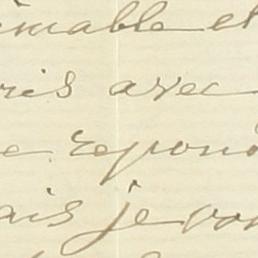 imable et
ris avec
e repond
ais je vou